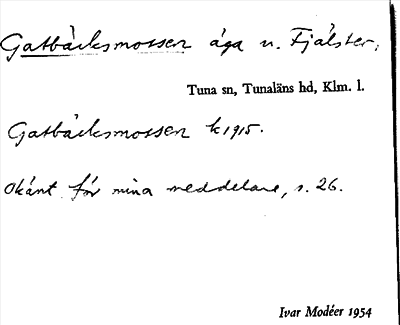 Gatbäcksmossen äga u. Fjälster,
Tuna sn, Tunaläns hd, Klm. l.
Gatbäcksmossen k 1915.
okänt för mina meddelare, s. 26.
Ivar Modéer 1954